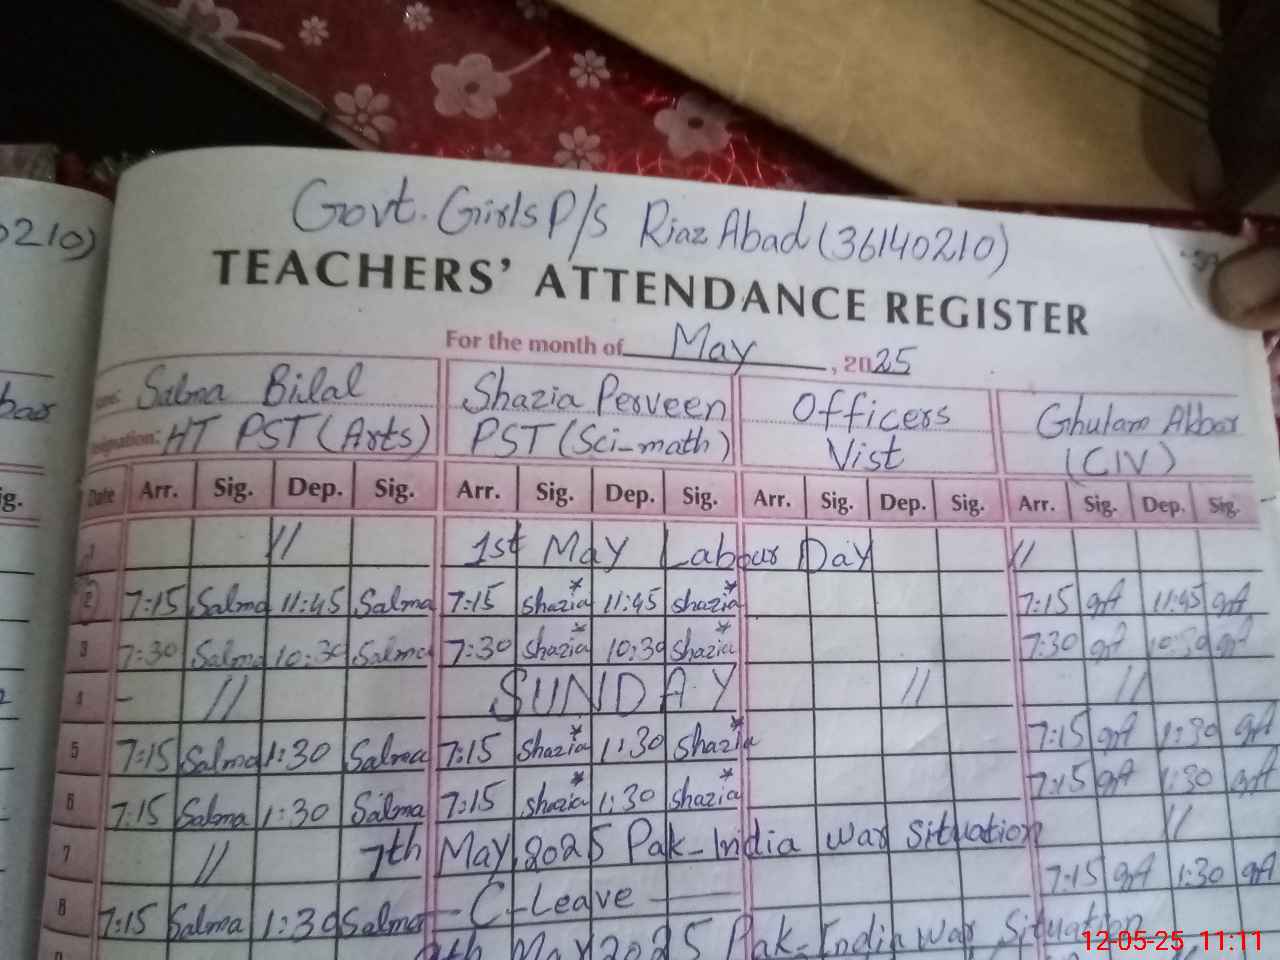 Govt. Girls P/S Riaz Abad (36140210)
0210)
TEACHERS' ATTENDANCE REGISTER
For the month of May, 2025
Salma Bilal Shazia Perveen Officers Ghulam Akbar
bar
Designation: HT PST (Arts) PST (Sci-math) Vist (CIV)
ig.
Date Arr. Sig. Dep. Sig. Arr. Sig. Dep. Sig. Arr. Sig. Dep. Sig. Arr. Sig. Dep. Sig.
1 // 1st May Labour Day //
2 7:15 Salma 11:45 Salma 7:15 Shazia* 11:45 Shazia* 7:15 11:45
3 7:30 Salma 10:30 Salma 7:30 Shazia* 10:30 Shazia* 7:30 10:30
4 – // SUNDAY // //
5 7:15 Salma 1:30 Salma 7:15 Shazia* 1:30 Shazia* 7:15 1:30
6 7:15 Salma 1:30 Salma 7:15 Shazia* 1:30 Shazia* 7:15 1:30
7 // 7th May, 2025 Pak-India war situation //
8 7:15 Salma 1:30 Salma – C-Leave – 7:15 1:30
9th May 2025 Pak-India war Situation
12-05-25 11:11